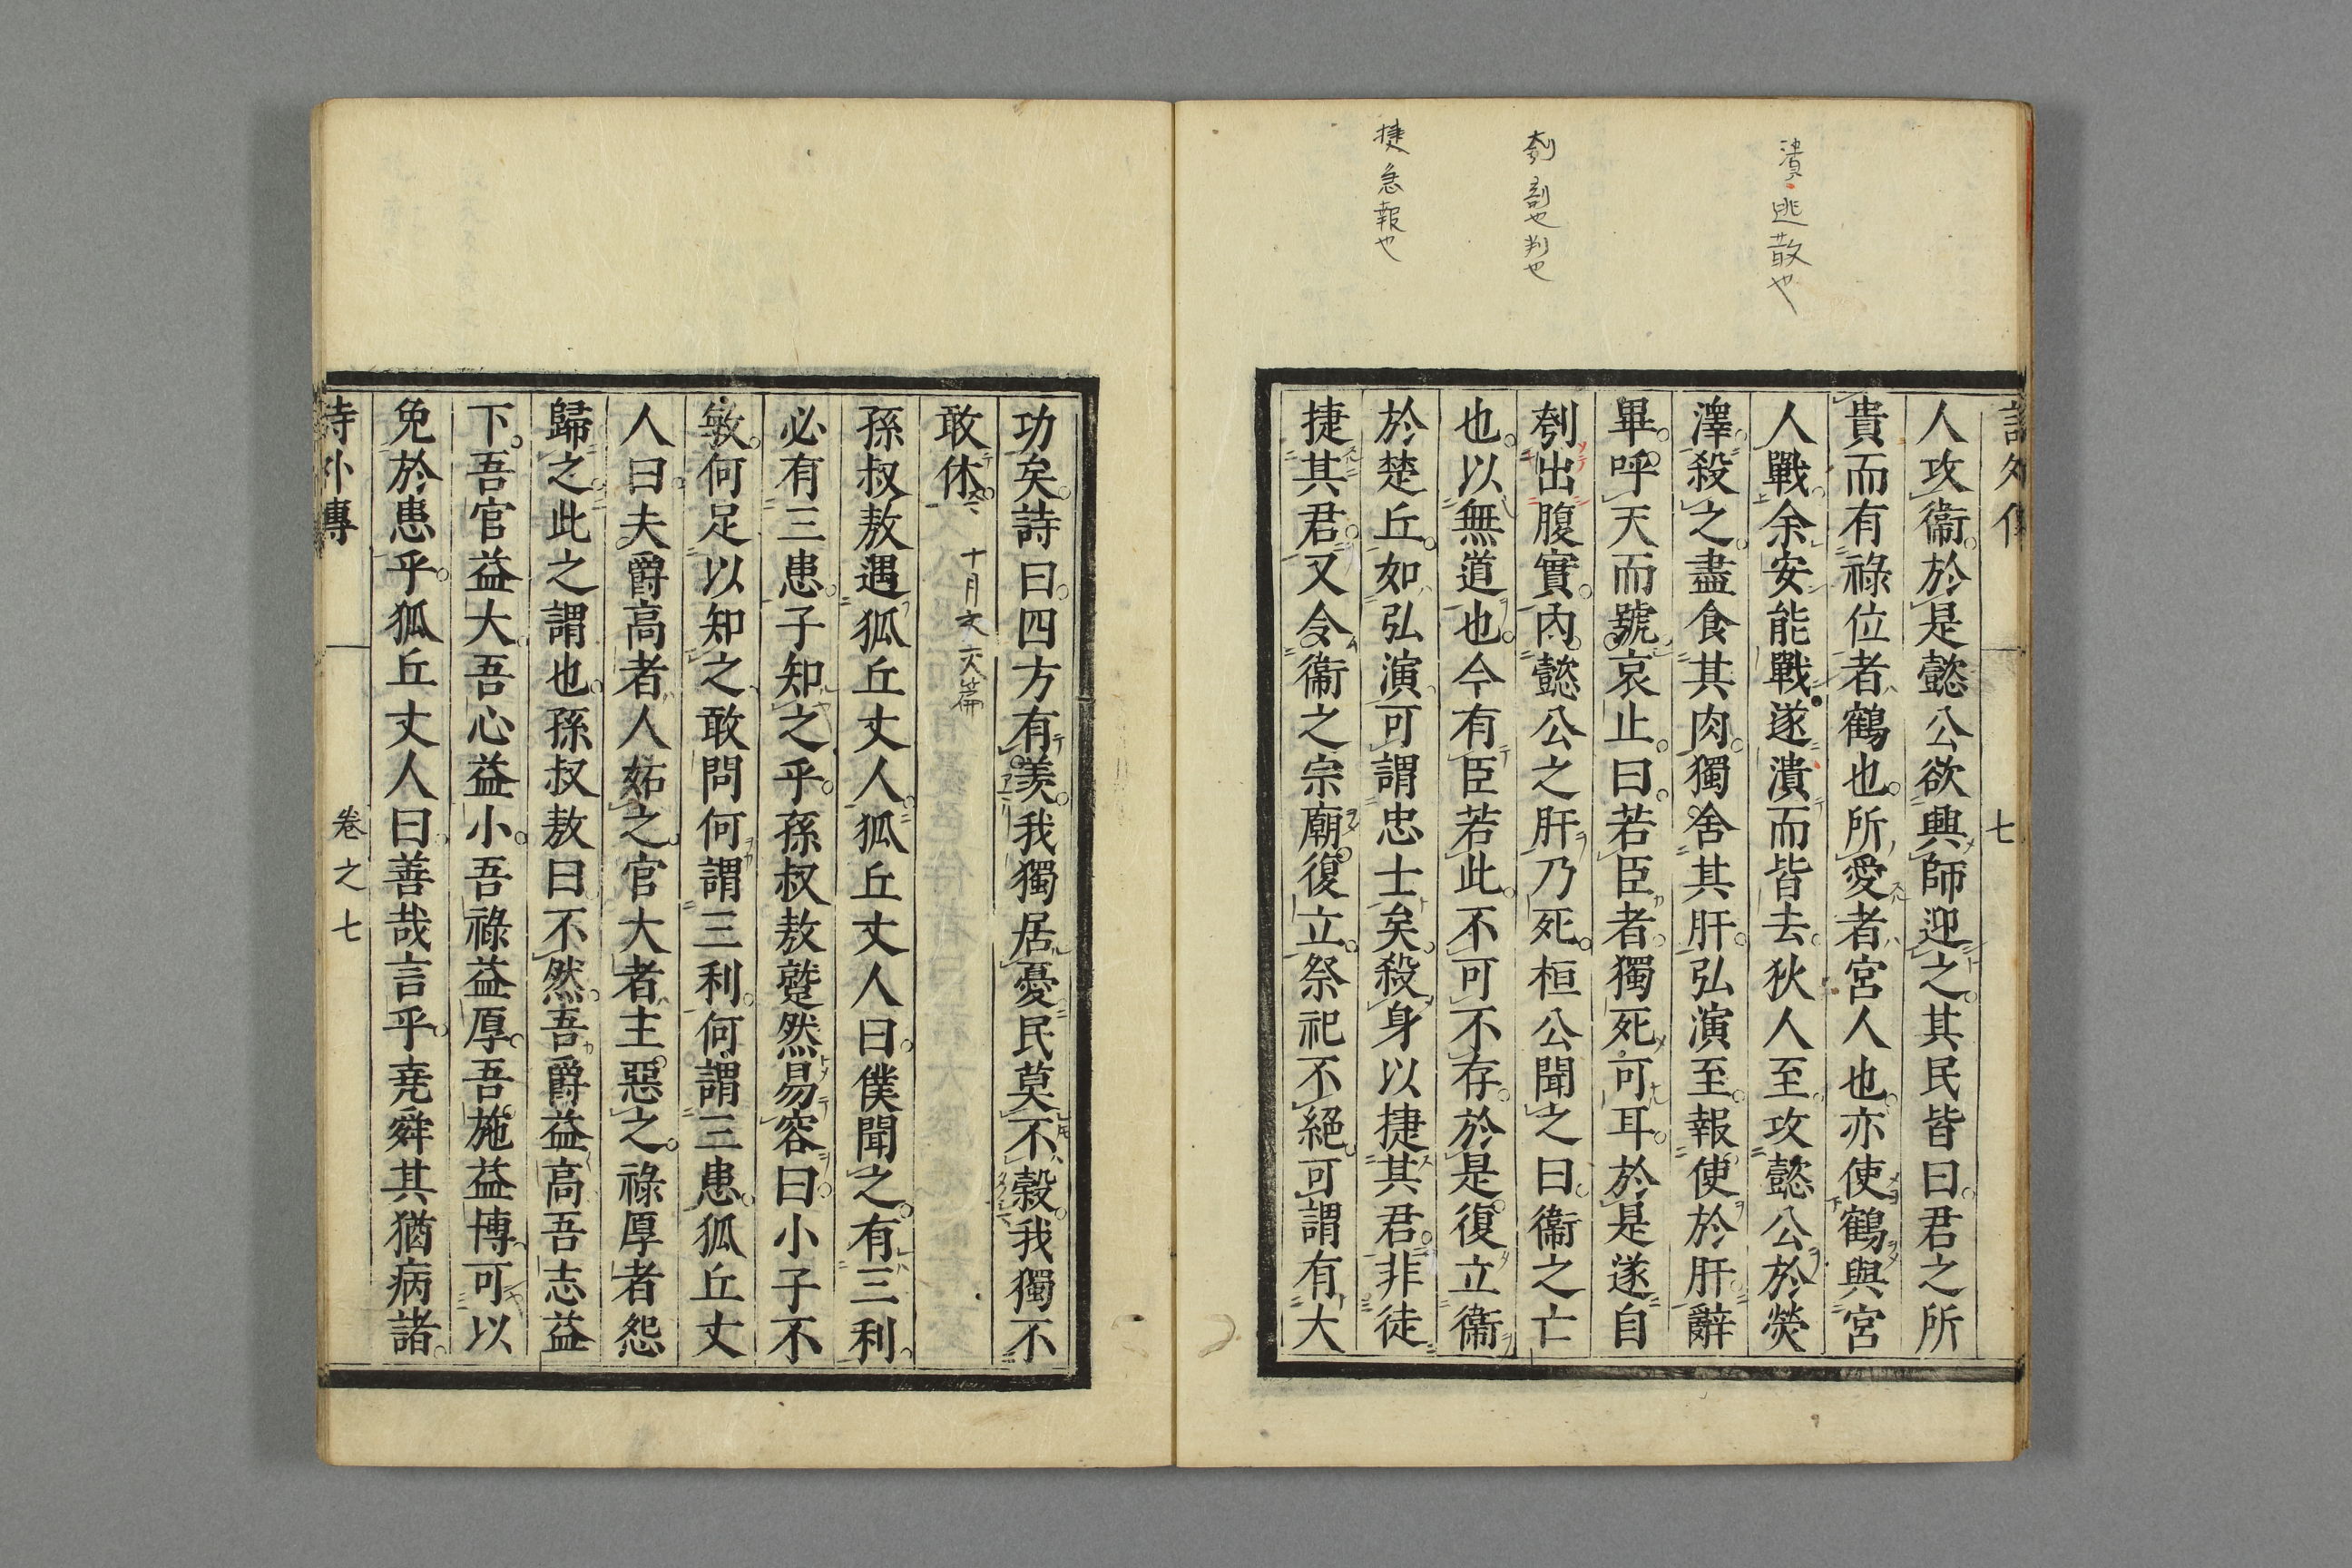 潰逃散也
刳割也判也
捷急報也
七
人攻衞於是懿公欲興師迎之其民皆曰君之所
貴而有祿位者鶴也所愛者宮人也亦使鶴與宮
人戰余安能戰遂潰而皆去狄人至攻懿公於熒
澤殺之盡食其肉獨舍其肝弘演至報使於肝辭
畢呼天而號哀止曰若臣者獨死可耳於是遂自
刳出腹實內懿公之肝乃死桓公聞之曰衞之亡
也以無道也今有臣若此不可不存於是復立衞
於楚丘如弘演可謂忠士矣殺身以捷其君非徒
捷其君又令衞之宗廟復立祭祀不絕可謂有大
功矣詩曰四方有羡我獨居憂民莫不穀我獨不
敢休 十月之交篇
孫叔敖遇狐丘丈人狐丘丈人曰僕聞之有三利
必有三患子知之乎孫叔敖蹵然易容曰小子不
敏何足以知之敢問何謂三利何謂三患狐丘丈
人曰夫爵高者人妬之官大者主惡之祿厚者怨
歸之此之謂也孫叔敖曰不然吾爵益高吾志益
下吾官益大吾心益小吾祿益厚吾施益博可以
免於患乎狐丘丈人曰善哉言乎堯舜其猶病諸
詩外傳 卷之七